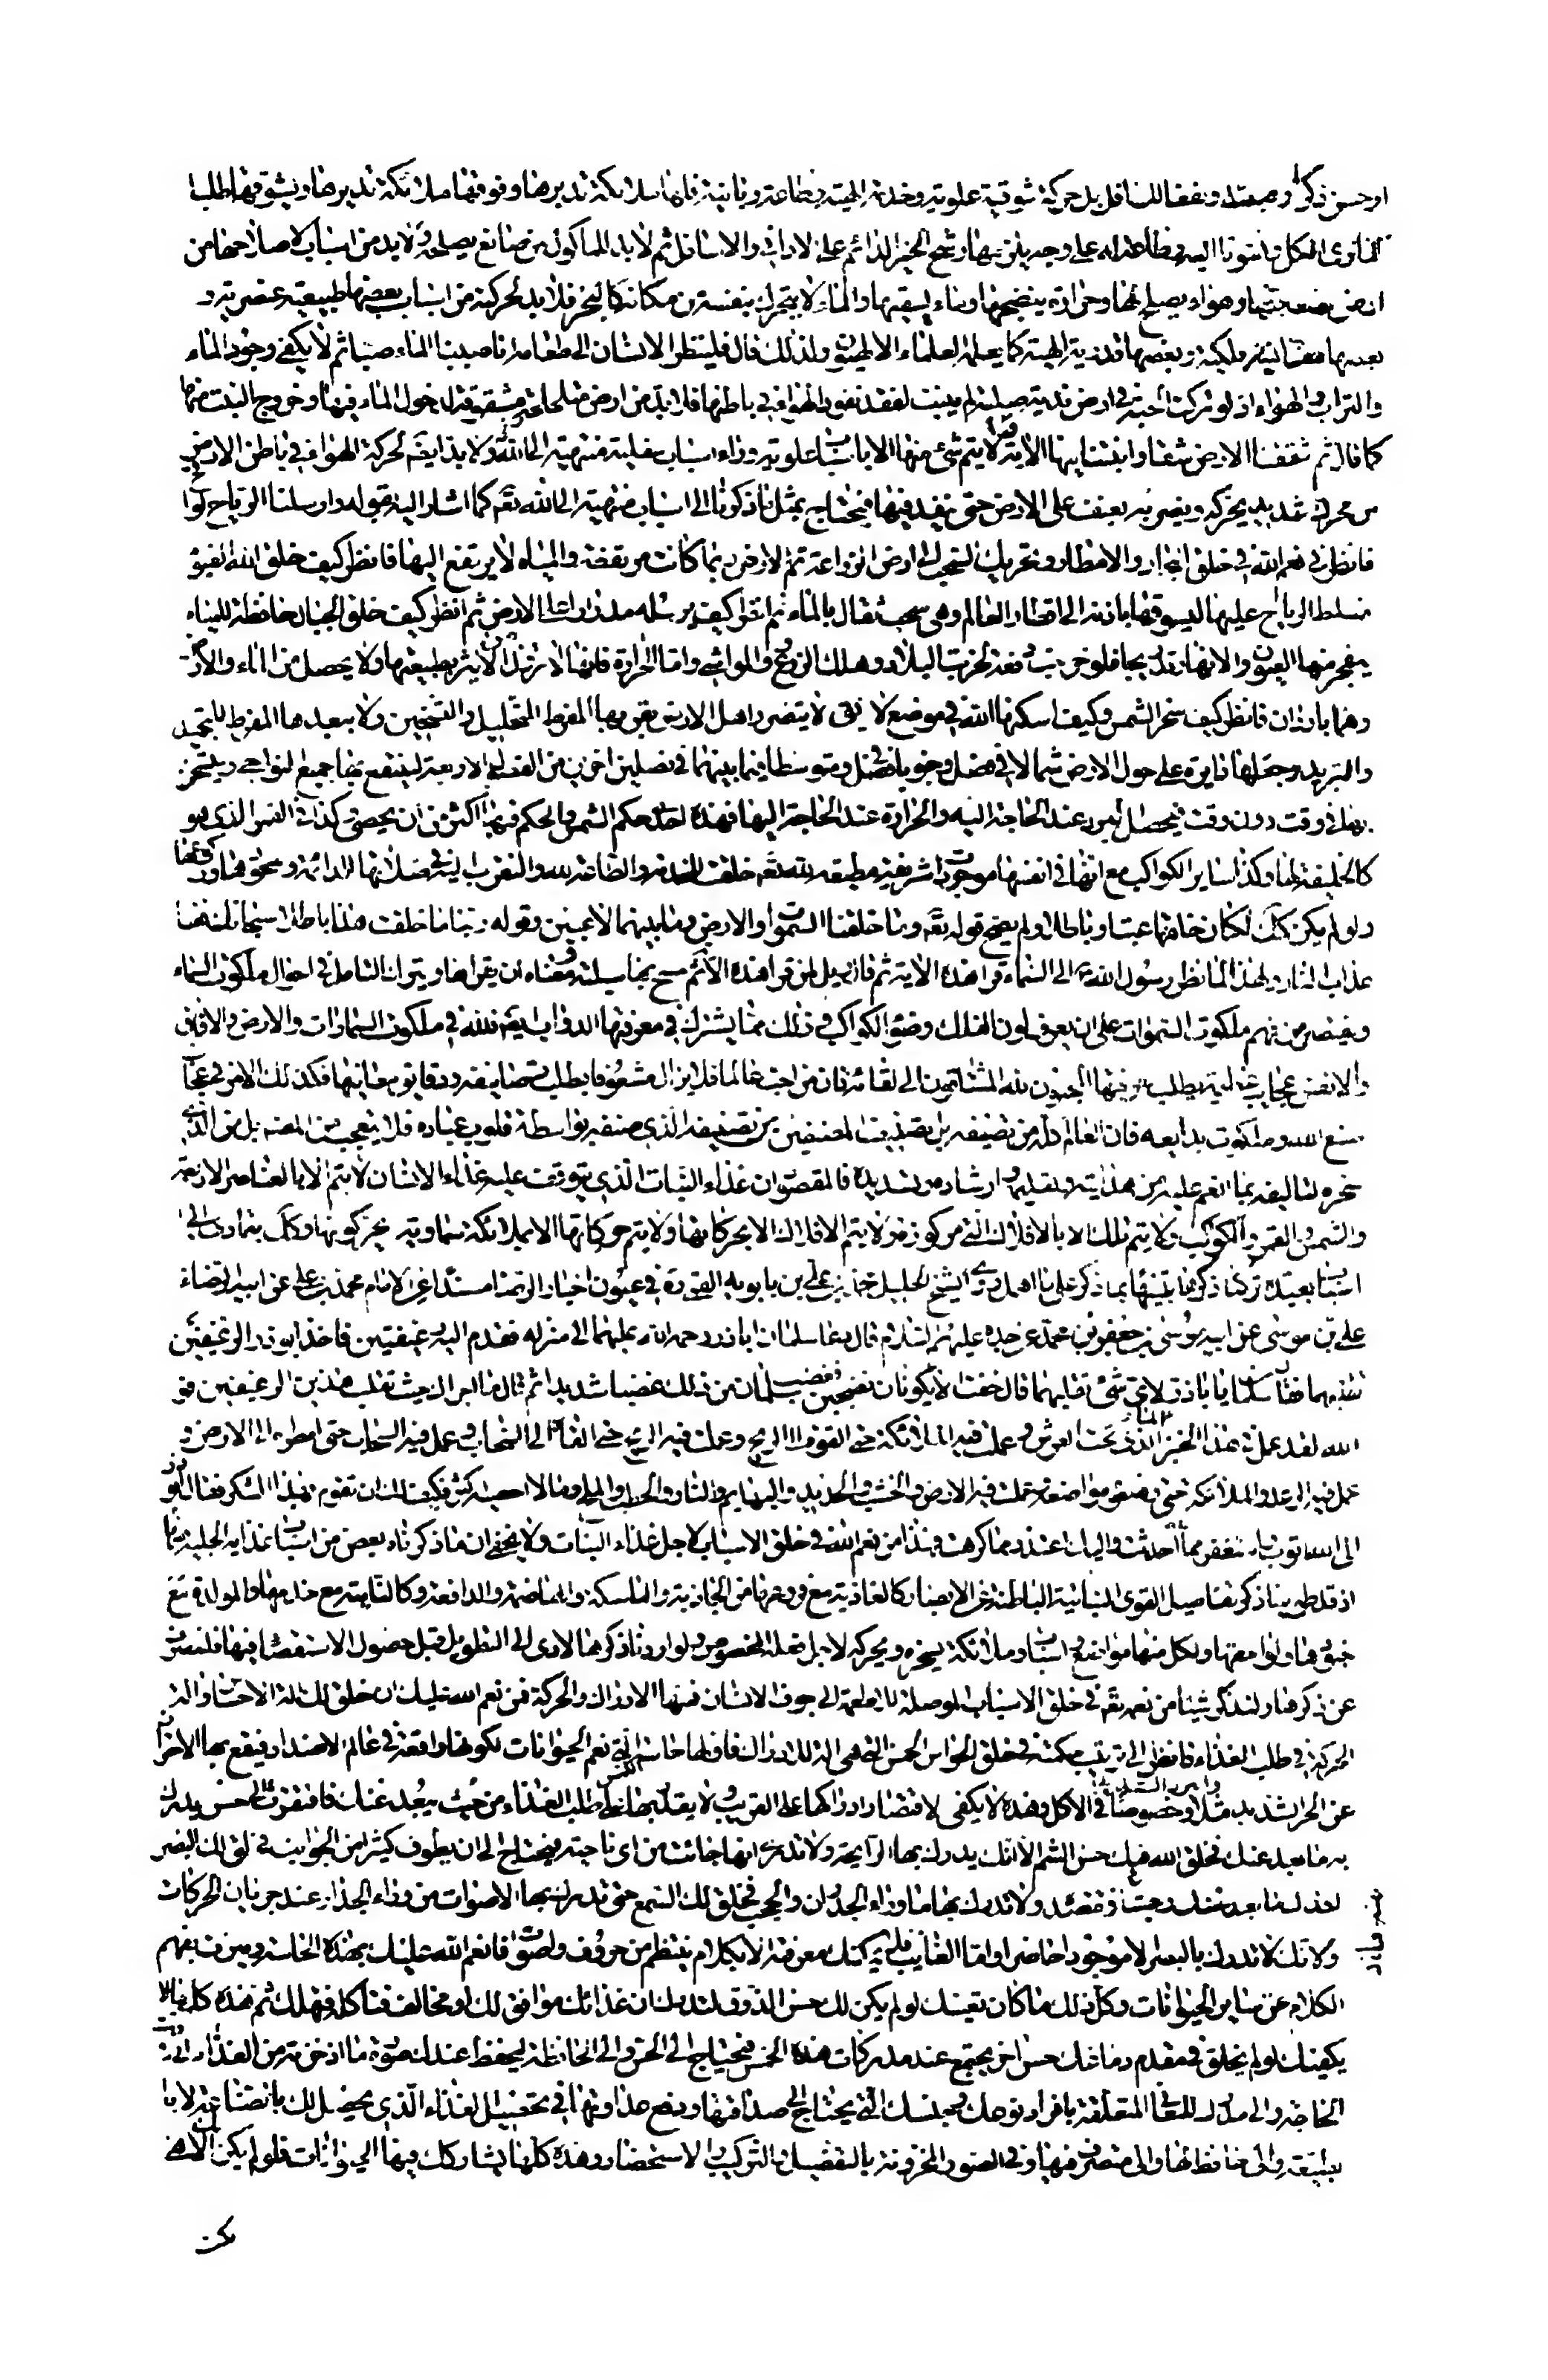 او حسن ذكر وصيت ونفعا للسافل بل حركة شوقية علوية وخدمة الهية وطاعة ربانية فانها ملائكة تدبرها وفوقها ملائكة تدبرها ويشوقها طلبا
على وجه يلزمها رشح الخير الدائم على الاداني والاسافل ثم لا بد للماكول من صانع يصلحه ولا بد من اسباب لاصلاحها من
ارض وهواء يصلح لها وحرارة ينضجها وماء يسقيها والماء لا يتحرك بنفسه من مكانه كالبحر فلا بد لحركته من اسباب بعضها طبيعية عنصرية و
بعضها نفسانية ملكية وبعضها قدرية الهية كما يعلمه العلماء الالهيون ولذلك قال فلينظر الانسان الى طعامه انا صببنا الماء صبا ثم لا يكفي وجود الماء
والتراب والهواء اذ لو تركت حبة في ارض ندية صلبة لم ينبت لفقد نفوذ الهواء في باطنها فلا بد من ارض متخلخلة مشقوقة لدخول الماء فيها وخروج النبت منها
كما قال ثم شققنا الارض شقا وانبتنا فيها الاية لا يتم شئ منها الا باسباب علوية وراء اسباب سفلية منتهية الى الله ولا بد ايضا لحركة الهواء في باطن الارض
من محرك شديد يحركه ويضربه بعنف على الارض حتى ينفذ فيها فيحتاج بمثل ما ذكرنا الى اسباب منتهية الى الله تع كما اشار اليه بقوله وارسلنا الرياح لواقح
فانظر في نعم الله في خلق البحار والامطار وتحريك السحب الى ارض الزراعة ثم الارض ربما كانت مرتفعة والمياه لا يرتفع اليها فانظر كيف خلق الله الغيوم
فسلط الرياح عليها ليسوقها باذنه الى اقطار العالم وهي سحب ثقال بالماء ثم انظر كيف يرسله مدرارا على الارض ثم انظر كيف خلق الجبال حافظة للمياه
يتفجر منها العيون والانهار تدريجا فلو خرجت دفعة لخربت البلاد وهلك الزرع والمواشي واما الحرارة فانها لا يؤثر بطبيعتها ولا يحصل من الماء والارض
وهما باردان فانظر كيف سخر الشمس وكيف اسكنها الله في موضع لائق لا يتضرر اهل الارض بقربها المفرط للتحليل والتسخين ولا ببعدها المفرط للتجميد
والتبريد وجعلها دايرة على حول الارض شمالا في فصل وجنوبا في فصل ومتوسطا فيما بينهما في فصلين اخرين من الفصول الاربعة لينتفع بها جميع النواحي ويتسخن
بها في وقت دون وقت فيحصل البرد عند الحاجة اليه والحرارة عند الحاجة اليها فهذه احد حكم الشمس والحكم فيها اكثر من ان يحصى وكذا القمر الذي هو
كالخليفة لها وكذا ساير الكواكب مع انها في انفسها موجودات شريفة مطيعة لله تع خلقت للخدمة والطاعة لله والتقرب اليه في صلاتها الدائمة
ولو لم يكن كذلك لكان خلقها عبثا وباطلا ولم يصح قوله تع وما خلقنا السموات والارض وما بينهما لاعبين وقوله ربنا ما خلقت هذا باطلا سبحانك فقنا
عذاب النار ولهذا لما نظر رسول الله الى السماء قرأ هذه الاية ثم قال ويل لمن قرأ هذه الاية ثم مسح بها سبلته ومعناه ان يقراها ويترك التامل في احوال ملكوت السماء
ويقتصر من فهم ملكوت السموات على ان يعرف لون الفلك وضوء الكواكب وذلك مما يشترك في معرفتها الدواب ايضا فلله في ملكوت السماوات والارض والافاق
والانفس عجايب يطلب معرفتها المحبون لله المشتاقون الى لقائه فان من احب عالما فلا يزال مشعوفا بطلب تصانيفه ودقايق معانيها فكذلك الامر في عجائب
صنع الله وملكوت بدايعه فان العالم كله من تصنيفه بل تصنيف المصنفين من تصنيفه الذي صنفه بواسطة قلوب عباده فلا يتعجب من المصنف بل من الذي
سخره لتاليفه بما انعم عليه من هدايته وتعليمه وارشاده وتسديده فالمقصود ان غذاء النبات الذي يتوقف عليه غذاء الانسان لا يتم الا بالعناصر الاربعة
والشمس والقمر والكواكب ولا يتم تلك الا بالافلاك التي مركوزة ولا يتم الافلاك الا بحركاتها ولا يتم حركاتها الا بملائكة سماوية يحركونها وكل يتمادى الى
اسباب بعيدة تركنا ذكرها تنبيها بما ذكر على ما اهمل روى الشيخ الجليل محمد بن علي بن بابويه القمي في عيون اخبار الرضا مسندا عن الامام محمد بن علي عن ابيه الرضا
علي بن موسى عن ابيه موسى بن جعفر بن محمد عن جده عليهم السلام قال دعا سلمان ابا ذر رحمه الله عليهما الى منزله فقدم اليه رغيفين فاخذ ابو ذر الرغيفين
يقلبهما فقال سلمان يا ابا ذر لاي شئ تقلبهما قال خفت لا يكونان نضيجين فغضب سلمان من ذلك غضبا شديدا ثم قال ما اجراك حيث تقلب هذين الرغيفين فو
الله لقد عمل في هذا الخبز الماء الذي تحت العرش وعملت فيه الملائكة حتى القوه الى الريح وعملت فيه الريح حتى القاه الى السحاب وعمل فيه السحاب حتى امطره الى الارض و
عمل فيه الرعد والملائكة حتى وضعوه مواضعه وعملت فيه الارض والخشب والحديد والبهايم والنار والحطب والملح وما لا احصيه اكثر فكيف لك ان تقوم بهذا الشكر فقال ابو ذر
الى الله اتوب واستغفر مما احدثت واليك اعتذر مما كرهت فهذا من نعم الله في خلق الاسباب لاجل غذاء النبات ولا يخفى ان ما ذكرناه بعض من اسباب غذايه الجلية
اذ قد طوينا ذكر تفاصيل القوى النباتية الباطنة عن الابصار كالغاذية مع فروعها من الجاذبة والماسكة والهاضمة والدافعة وكالنامية مع خدمها والمولدة مع
ولكل منها مواضع واسباب وملائكة يسخره ويحركه لاجل فعله المخصوص ولو اردنا ذكرها لادى الى التطويل قبل حصول الاستقصاء فيها فلنعرض
عن ذكرها ولنذكر شيئا من نعمه تع في خلق الاسباب الموصلة للاطعمة الى جوف الانسان فمنها الادراك والحركة فمن نعم الله عليك ان خلق لك الة الاحساس والة
الحركة في طلب الغذاء فانظر الى ترتيب حكمته في خلق الحواس الخمس التي هي الة للادراك فاولها حاسة اللمس التي تعم الحيوانات لكونها واقعة في عالم الاضداد فيقع بها الاحتراز
عن الحر الشديد مثلا والبرد الشديد وخصوصا في الاكل وهذه لا يكفي لاقتضاء ادراكها على القريب ولا يقدر بها على طلب الغذاء من حيث يبعد عنك فافتقرت الى حس يدرك
به ما بعد عنك فخلق الله فيك حس الشم الا انك يدرك بها الرايحة ولا تدري انها جائت من اي ناحية فيحتاج الى ان يطوف كثيرا من الجوانب فخلق لك البصر
لتدرك ما بعد عنك وجهته فتقصده ولا تدرك بها ما وراء الجدران والحجب فخلق لك السمع حتى تدرك بها الاصوات من وراء الجدار عند جريان الحركات
ولانك لا تدرك بالبصر الا موجودا حاضرا واما الغايب فلم يمكنك معرفته الا بكلام ينتظم من حروف واصوات فانعم الله عليك بهذه الحاسة وميزت بفهم
الكلام عن ساير الحيوانات وكل ذلك ما كان يغنيك لو لم يكن لك حس الذوق لتدرك ان غذائك موافق لك او مخالف فتاكله فتهلك ثم هذه كلها لا
يكفيك لو لم يخلق في مقدم دماغك حس اخر يجتمع عنده مدركات هذه الخمس فيحتاج الى الحس والى الحافظة ليحفظ عندك صورة ما ادخرته من الغذاء
الحاجة والى مدرك للمعاني المتعلقة بافراد نوعك وجنسك التي يحتاج الى صداقتها ودفع عداوتها في تحصيل الغذاء الذي يحصل لك بالصناعة لا با
لطبيعة والى حافظ لها والى متصرف فيها وفي الصور المخزونة بالتفصيل والتركيب والاستحضار وهذه كلها يشاركك فيها الحيوانات فلو لم يكن لك الا هي
يكن